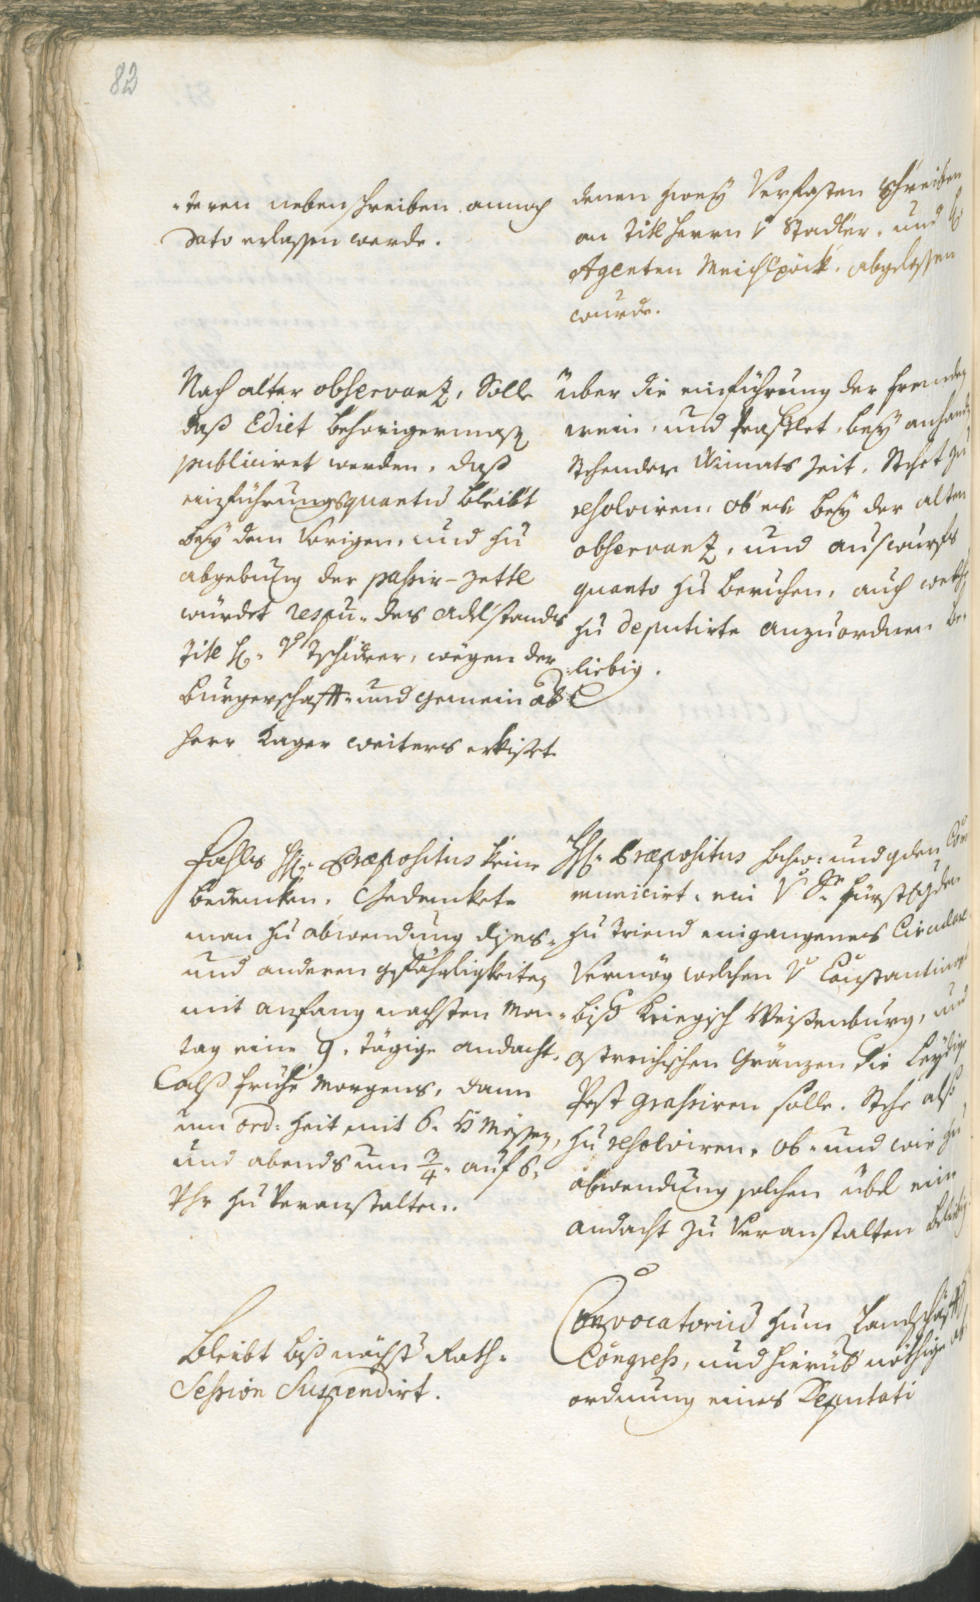 82
-teren nebenschreiben annoch
dato erlassen werde.
denen zwey Verfasten schreiben
an Titl herrn v Stadler, und
Agenten Meichlpöck, abgelassen
wurde.
Nach alter observanz, Solle
daß Edict behörigermaß
publiciret werden, daß
einführungsquantu bleibt
bey dem Vorigen, und zu
abgebung der passir-zettl
würdet respu. des adlstands
Titl H. v Tschiderer, wegen der
burgerschafft und gemein aber
herr Kager weiters erkißt.
über die einführung der frembden
wein, und Praßlet, bey anhand
stehender Wimats zeit, Stehet zu
resolviren, ob es bey der alten
observanz, und auswurfs
quanto zu beruhen, auch welche
zu deputirte anzuordnen be-
liebig.
Fahls H. Præpositus keine
bedencken, Gedenckete
man zu abwendung dises,
und anderen gefährligkeiten
mit anfang nachsten Mon-
tag eine 9. tägige andacht,
als fruhe Morgens, dann
um ord: Zeit mit 6. H Messen,
und abends um 3/4 auf 6.
Uhr zu Veranstalten.
H. Præpositus hochw: und gden Com
municirt, ein v Sr fürstl gden
zu Triend eingangenes Circulare
Vermög welchen v Constantinopl
biß Kriegisch Weissenburg, und
östreichischen Gränzen die Leydige
Pest grassiren solle. Stehe alß
zu resolviren, ob- und wie zu
abwendung solchen übel eine
andacht zu Veranstalten beliebig
Bleibt biß nächst Rath-
Session Suspendirt.
Convocatoriu zum Landschafft
Congress, und hierüber nöthige
ordnung eines Deputati